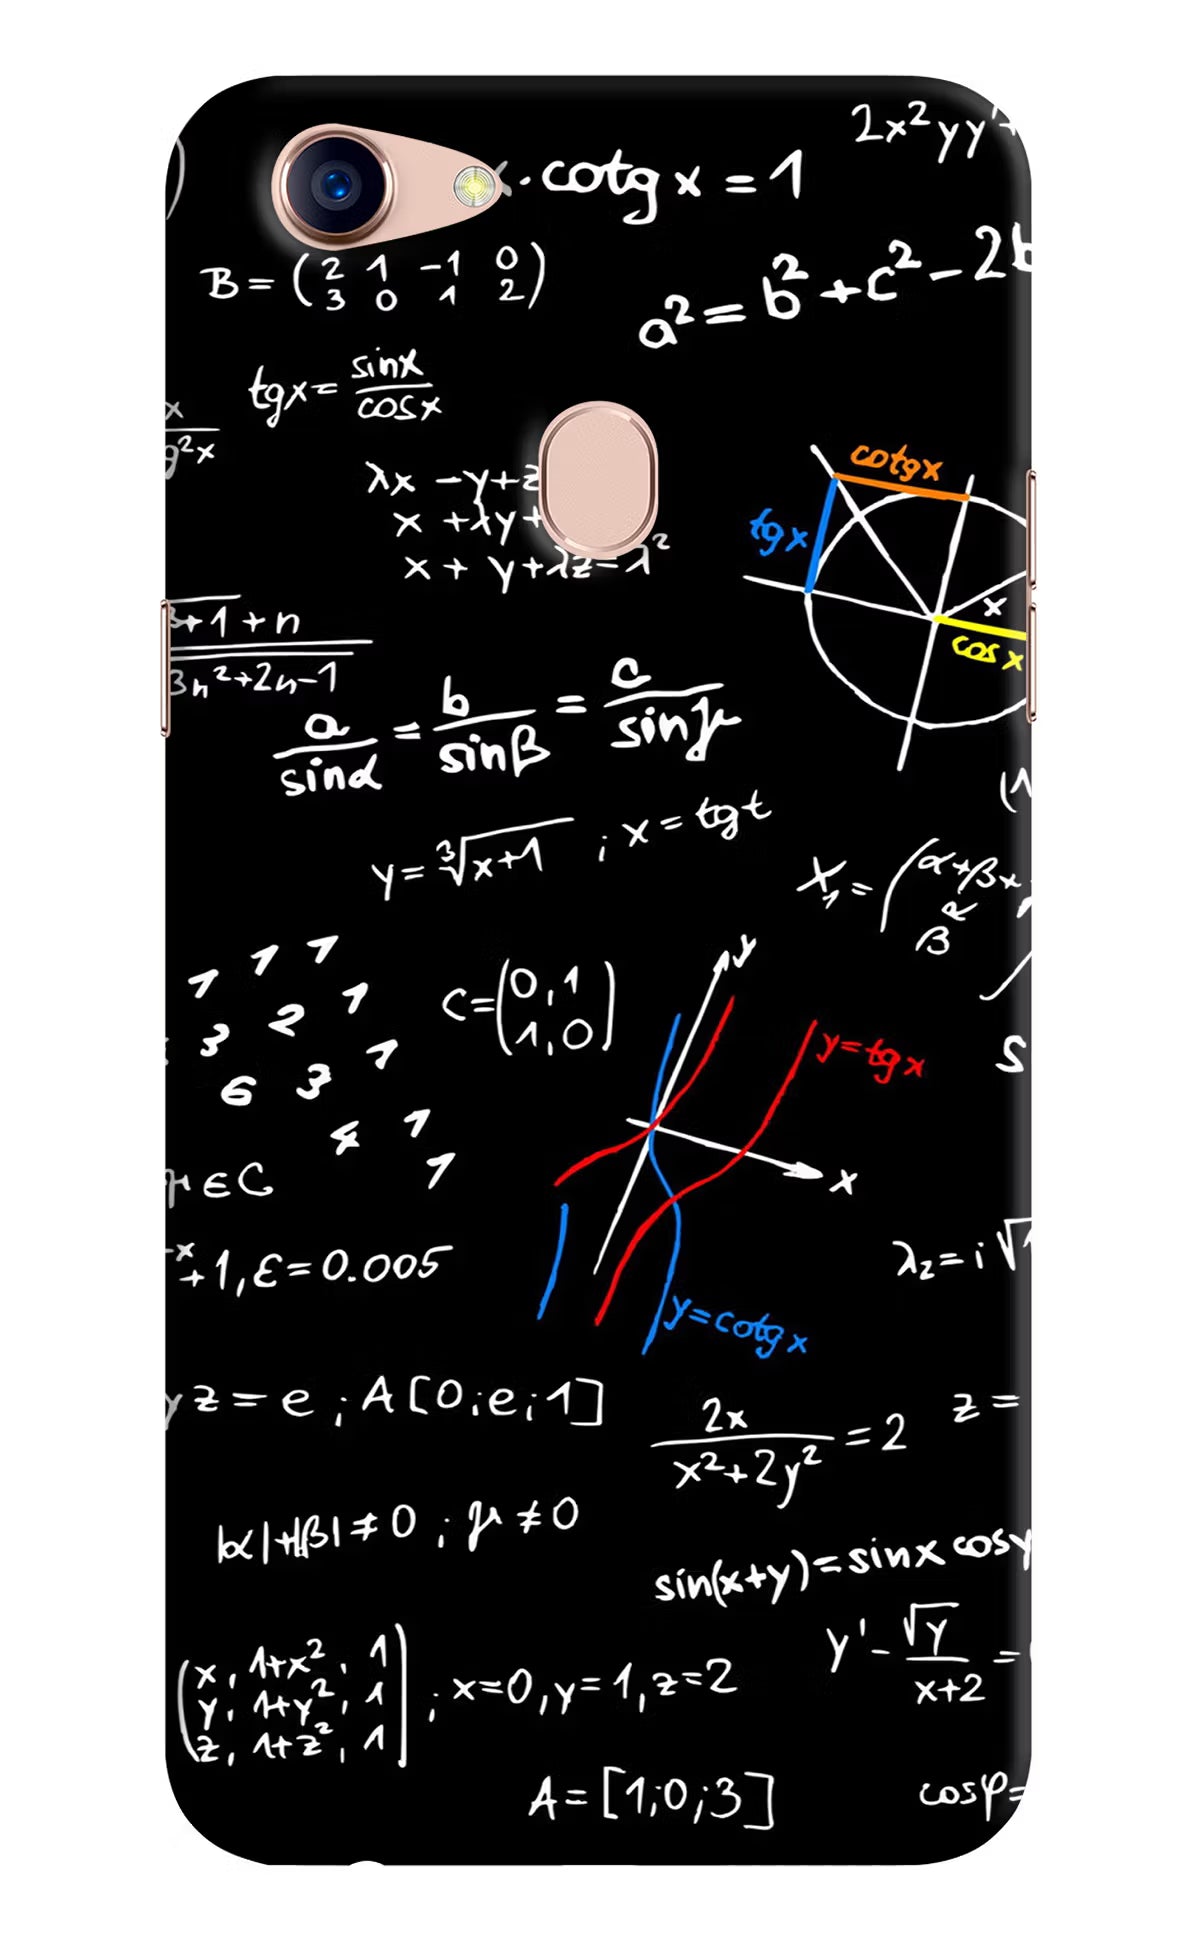 2x²yy'+
· cotg x = 1
B = (2 1 -1 0
3 0 1 2)
a² = b² + c² - 2b
tgx = sinx
cosx
x
g²x
cotgx
tgx
x
cos x
λx - y + z
x + λy +
x + y + λz = λ²
3+1 + n
3n²+2n-1
a/sinα = b/sinβ = c/sinγ
y = ∛x+1 ; x = tgt
X₁ = (α+β+
β
C = (0,1
1,0)
1 1 1
3 2 1
6 3 1
4 1
1
y
y=tgx
x
y=cotgx
S
μ ∈ C
-x
+1, ε = 0.005
λ₂ = i√
yz = e ; A[0;e;1]
2x/x²+2y² = 2
z =
|α|+|β| ≠ 0 ; μ ≠ 0
sin(x+y) = sinx cosy
y' - √y/x+2 =
(x, 1+x², 1
y, 1+y², 1
z, 1+z², 1) ; x=0, y=1, z=2
A = [1;0;3]
cosφ=